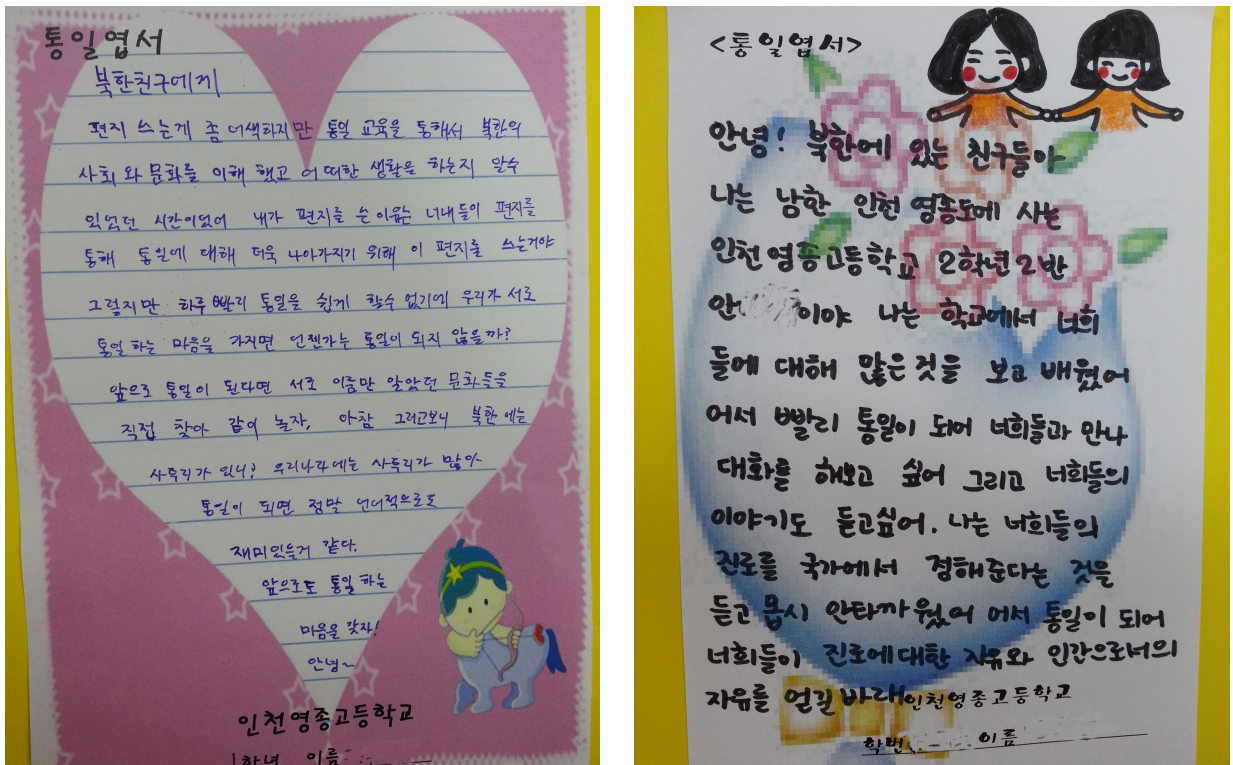 통일엽서
북한친구에게
편지 쓰는게 좀 어색하지만 통일 교육을 통해서 북한의
사회 와 문화를 이해 했고 어떠한 생활을 하는지 알수
있었던 시간이었어 내가 편지를 쓴 이유는 너내들이 편지를
통해 통일에 대해 더욱 나아가지기 위해 이 편지를 쓰는거야
그렇지만 하루 빨리 통일을 쉽게 할수 없기에 우리가 서로
통일 하는 마음을 가지면 언젠가는 통일이 되지 않을까?
앞으로 통일이 된다면 서로 이름만 알았던 문화들을
직접 찾아 같이 놀자, 아참 그러고보니 북한 에는
사투리가 있니? 우리나라에는 사투리가 많아
통일이 되면 정말 언어적으로도
재미있을거 같다.
앞으로도 통일 하는
마음을 갖자!
안녕~
인천영종고등학교
1학년 이름
<통일엽서>
안녕! 북한에 있는 친구들아
나는 남한 인천 영종도에 사는
인천영종고등학교 2학년2반
안 이야 나는 학교에서 너희
들에 대해 많은것을 보고 배웠어
어서 빨리 통일이 되어 너희들과 만나
대화를 해보고 싶어 그리고 너희들의
이야기도 듣고싶어. 나는 너희들의
진로를 국가에서 정해준다는 것을
듣고 몹시 안타까웠어 어서 통일이 되어
너희들이 진로에대한 자유와 인간으로서의
자유를 얻길 바래
인천영종고등학교
학번 이름